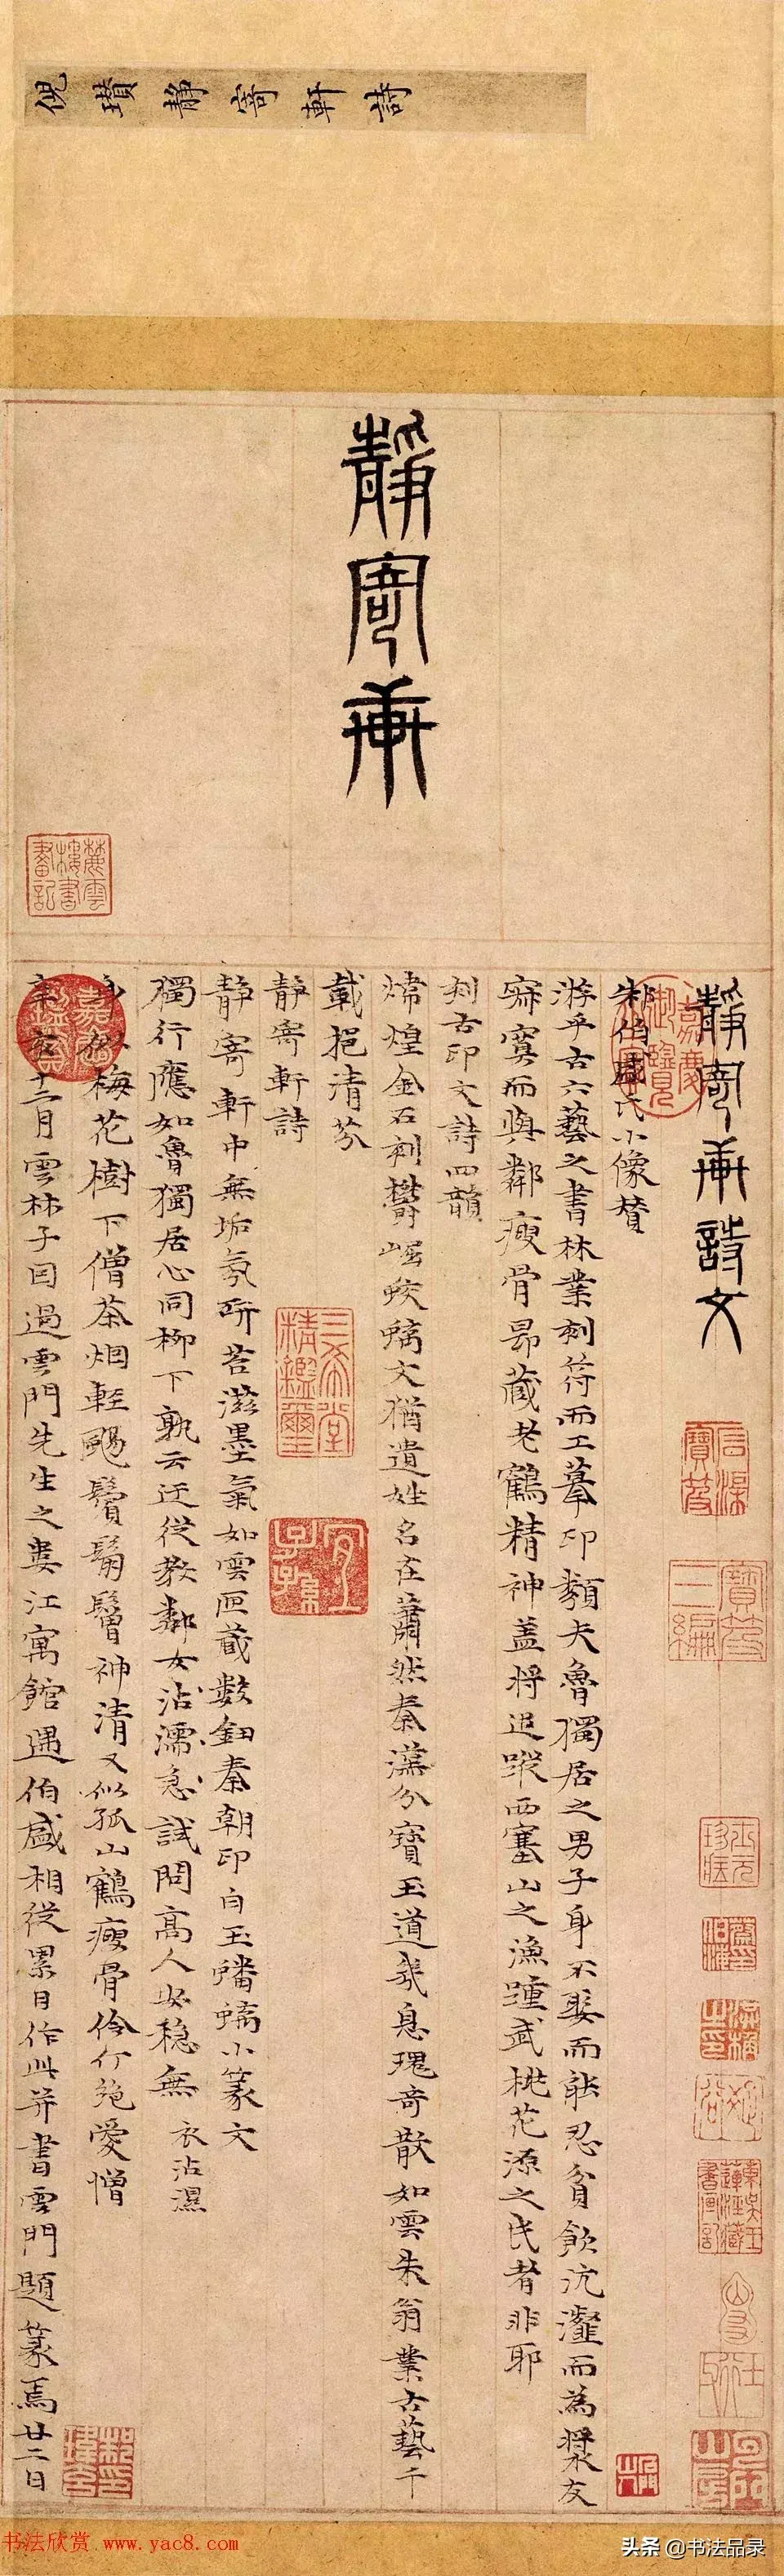 倪瓚静寄軒詩
靜寄軒
靜寄軒詩文
朱伯盛氏小像贊
游乎古六藝之書林業刻符而工摹印類夫魯獨居之男子身不娶而能忍貧飲沆瀣而為漿友
寂寞而與鄰瘦骨昂藏老鶴精神蓋將追蹤西塞山之漁踵武桃花源之民者非耶
刻古印文詩四韻
煒煌金石刻欝崛蛟螭文猶遺姓名在蕭然秦漢分寶玉道幾息瑰奇散如雲朱翁業古藝千
載挹清芬
静寄軒詩
静寄軒中無垢氛研苔滋墨氣如雲匣藏數鈕秦朝印白玉蟠螭小篆文
獨行應如魯獨居心同柳下孰云迂從教鄰女沾濡急試問高人安穩無 衣沾濕
身似梅花樹下僧茶烟輕颺鬢鬅鬙神清又似孤山鶴瘦骨伶仃絶愛憎
辛亥十二月雲林子因過雲門先生之婁江寓館遇伯盛相從累日作此并書雲門題篆焉廿二日
嘉慶御覽之寶
嘉慶鑑賞
三希堂精鑑璽
宜子孫
寶笈三編
麓雲樓書畫記
书法欣赏 www.yac8.com
头条 @书法品录